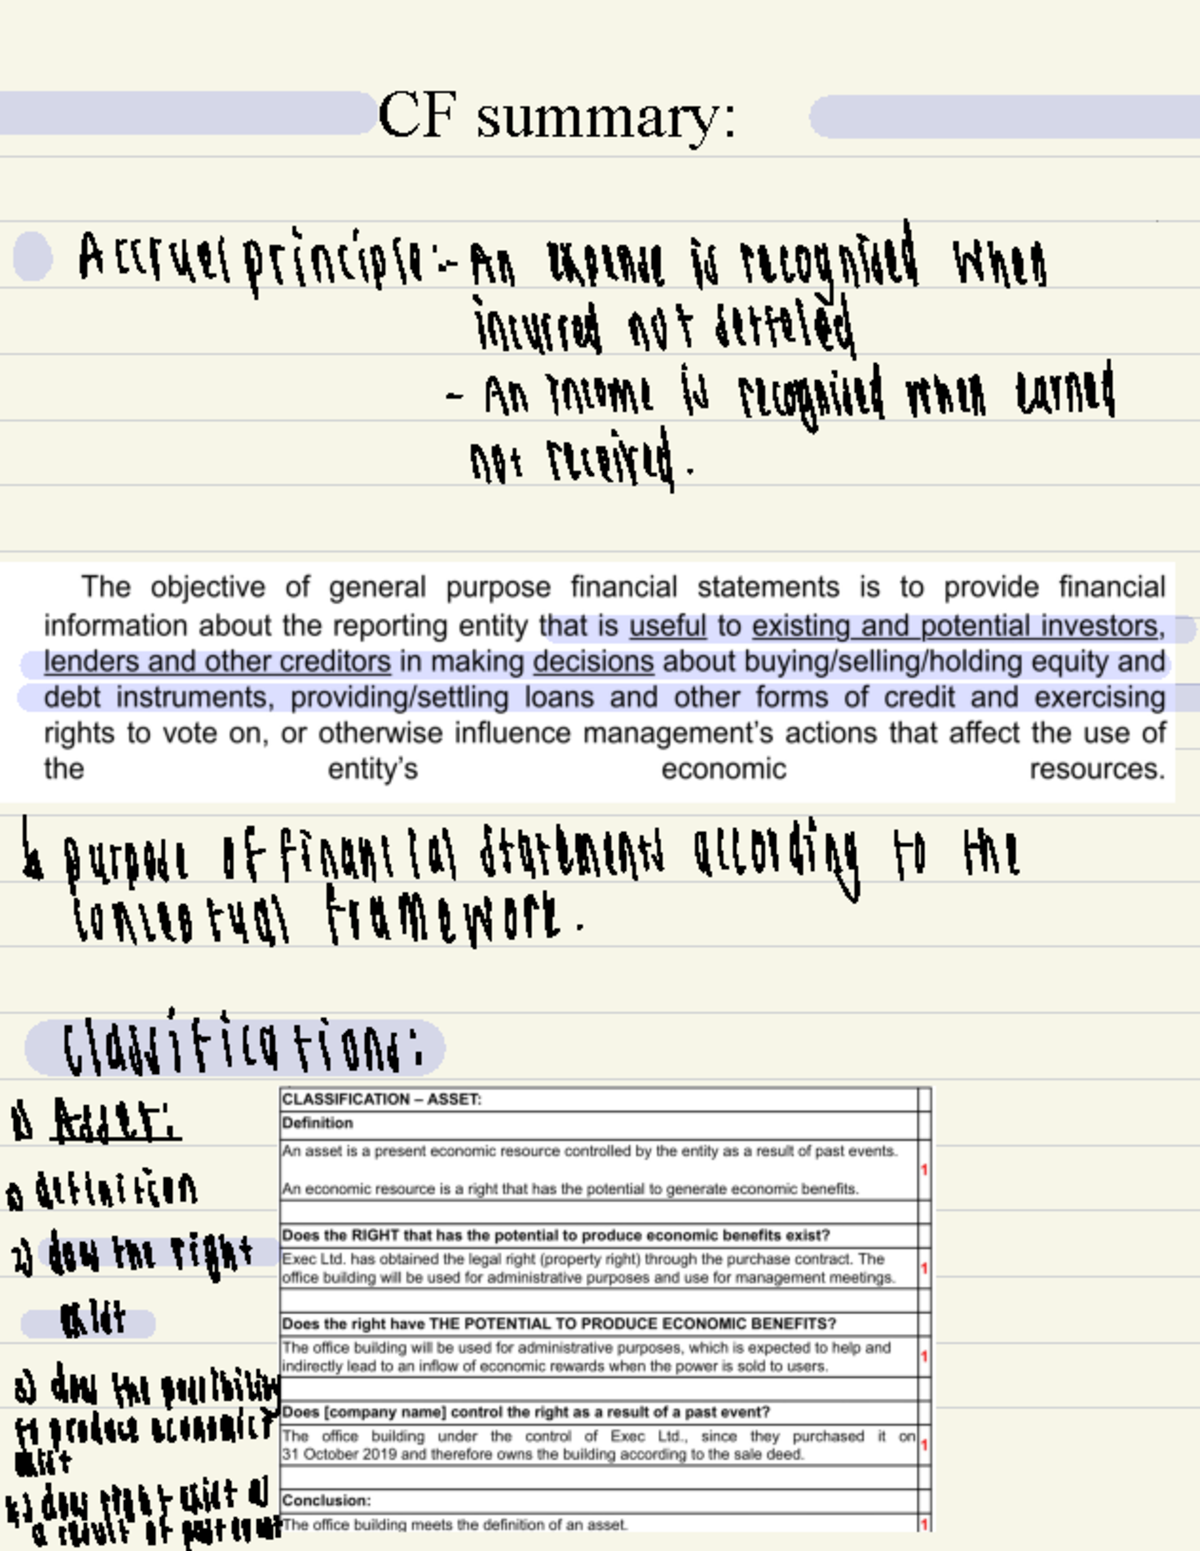 CF summary:
Accrual principle:- An expense is recognised when
incurred not
- An income is recognised when earned
not received.
The objective of general purpose financial statements is to provide financial
information about the reporting entity that is useful to existing and potential investors,
lenders and other creditors in making decisions about buying/selling/holding equity and
debt instruments, providing/settling loans and other forms of credit and exercising
rights to vote on, or otherwise influence management's actions that affect the use of
the entity's economic resources.
↳ purpose of financial statements according to the
framework.
Classifications:
1) Asset:
1) definition
2) does the right
exist
3) does the possibility
to produce economic
exist
4) does right exist as
a result of past event
CLASSIFICATION – ASSET:
Definition
An asset is a present economic resource controlled by the entity as a result of past events.
1
An economic resource is a right that has the potential to generate economic benefits.
Does the RIGHT that has the potential to produce economic benefits exist?
Exec Ltd. has obtained the legal right (property right) through the purchase contract. The
office building will be used for administrative purposes and use for management meetings.
1
Does the right have THE POTENTIAL TO PRODUCE ECONOMIC BENEFITS?
The office building will be used for administrative purposes, which is expected to help and
indirectly lead to an inflow of economic rewards when the power is sold to users.
1
Does [company name] control the right as a result of a past event?
The office building under the control of Exec Ltd., since they purchased it on
31 October 2019 and therefore owns the building according to the sale deed.
1
Conclusion:
The office building meets the definition of an asset.
1